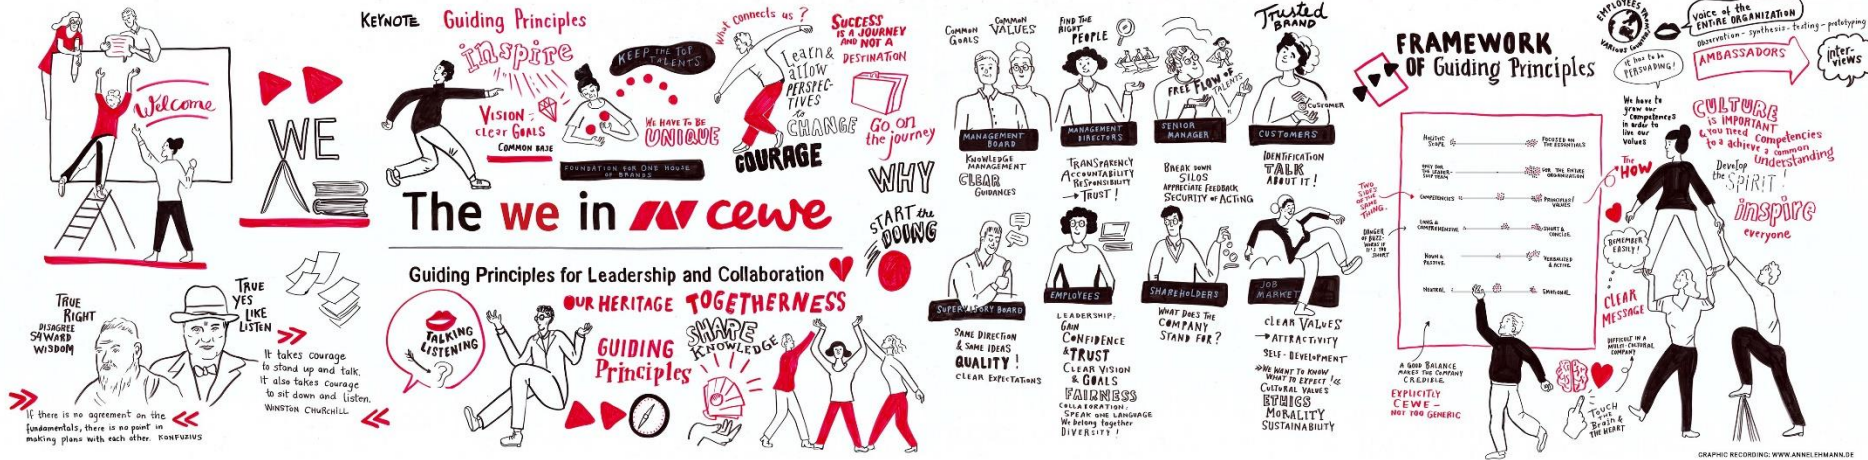 Welcome
WE
TRUE
RIGHT
DISAGREE
WISDOM
TRUE
YES
LIKE
LISTEN
It takes courage
to stand up and talk.
it also takes courage
to sit down and listen.
WINSTON CHURCHILL
If there is no agreement on the
fundamentals, there is no point in
making plans with each other. KONFUZIUS
KEYNOTE
Guiding Principles
inspire
VISION
clear GOALS
COMMON BASE
KEEP THE TOP
TALENTS
WE HAVE TO BE
UNIQUE
FOUNDATION FOR ONE HOUSE
OF BRANDS
What connects us?
Learn &
allow
PERSPEC-
TIVES
to
CHANGE
COURAGE
SUCCESS
IS A JOURNEY
AND NOT A
DESTINATION
Go on
the journey
WHY
START the
DOING
The we in cewe
Guiding Principles for Leadership and Collaboration
TALKING
LISTENING
?
OUR HERITAGE
TOGETHERNESS
GUIDING
Principles
SHARE
KNOWLEDGE
COMMON
GOALS
COMMON
VALUES
MANAGEMENT
BOARD
KNOWLEDGE
MANAGEMENT
CLEAR
GUIDANCES
FIND THE
RIGHT
PEOPLE
MANAGEMENT
DIRECTORS
TRANSPARENCY
ACCOUNTABILITY
RESPONSIBILITY
→ TRUST!
FREE FLOW OF
TALENTS
SENIOR
MANAGER
BREAK DOWN
SILOS
APPRECIATE FEEDBACK
SECURITY OF ACTING
Trusted
BRAND
CUSTOMER
CUSTOMERS
IDENTIFICATION
TALK
ABOUT IT!
SUPERVISORY BOARD
SAME DIRECTION
& SAME IDEAS
QUALITY!
CLEAR EXPECTATIONS
EMPLOYEES
LEADERSHIP:
GAIN
CONFIDENCE
& TRUST
CLEAR VISION
& GOALS
FAIRNESS
COLLABORATION:
SPEAK ONE LANGUAGE
We belong together
DIVERSITY!
SHAREHOLDERS
WHAT DOES THE
COMPANY
STAND FOR?
JOB
MARKET
CLEAR VALUES
→ ATTRACTIVITY
SELF-DEVELOPMENT
»WE WANT TO KNOW
WHAT TO EXPECT!«
CULTURAL VALUES
ETHICS
MORALITY
SUSTAINABILITY
FRAMEWORK
OF Guiding Principles
HOLISTIC
SCOPE
FOCUSED ON
THE ESSENTIALS
ONLY FOR
THE LEADER-
SHIP TEAM
FOR THE ENTIRE
ORGANIZATION
COMPETENCIES
PRINCIPLES/
VALUES
LONG &
COMPREHENSIVE
SHORT &
CONCISE
NOUN &
PASSIVE
VERBALISED
& ACTIVE
NEUTRAL
EMOTIONAL
TWO
SIDES
OF THE
SAME
THING.
DANGER
OF BUZZ-
WORDS IF
IT'S TOO
SHORT
A GOOD BALANCE
MAKES THE COMPANY
CREDIBLE
EXPLICITLY
CEWE -
NOT TOO GENERIC
EMPLOYEES FROM
VARIOUS COUNTRIES
voice of the
ENTIRE ORGANIZATION
observation - synthesis - testing - prototyping
it has to be
PERSUADING!
AMBASSADORS
inter-
views
We have to
grow our
competences
in order to
live our
values
CULTURE
IS IMPORTANT
& you need competencies
to achieve a common
understanding
The
HOW
Develop
the SPIRIT!
inspire
everyone
REMEMBER
EASILY!
CLEAR
MESSAGE
DIFFICULT IN A
MULTI-CULTURAL
COMPANY
TOUCH
THE
Brain &
THE HEART
GRAPHIC RECORDING: WWW.ANNELEHMANN.DE